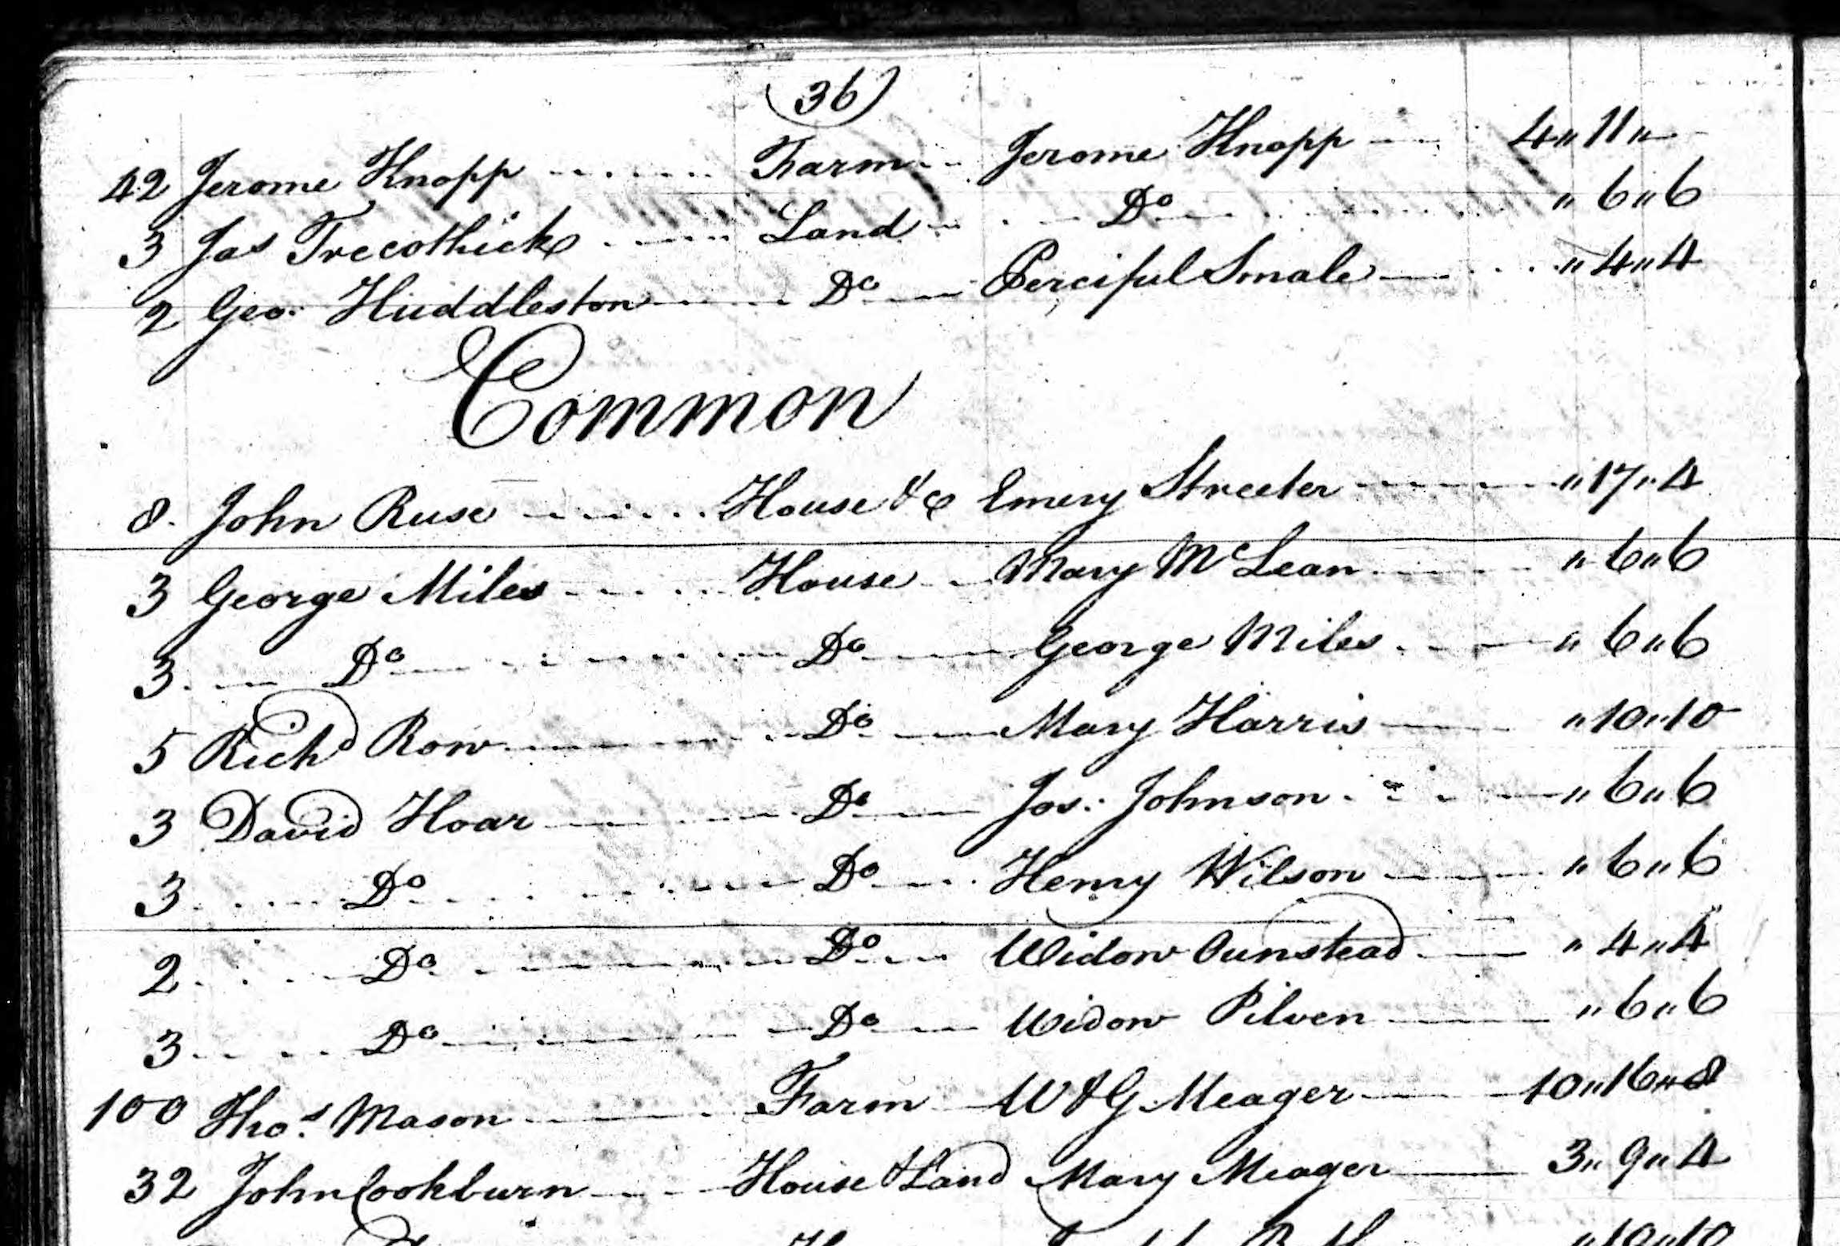 (36)
42 Jerome Knapp Farm Jerome Knapp 4 " 11 "
3 Jas Trecothick Land Do " 6 " 6
2 Geo: Huddleston Do Perciful Smale " 4 " 4
Common
8. John Ruse House &c Emery Streeter " 17 " 4
3 George Miles House Mary McLean " 6 " 6
3 Do Do George Miles " 6 " 6
5 Richd Row Do Mary Harris " 10 " 10
3 David Hoar Do Jos: Johnson " 6 " 6
3 Do Do Henry Wilson " 6 " 6
2 Do Do Widow Ounstead " 4 " 4
3 Do Do Widow Pilven " 6 " 6
100 Thos. Mason Farm W & G Meager 10 " 16 " 8
32 John Cookburn House & Land Mary Meager 3 " 9 " 4
" 10 " 10